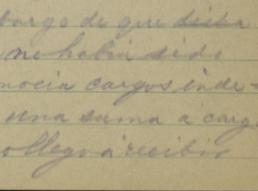 bargo de que dicha
no habia sido
nocia cargos inde-
una suma a carg
llego a recibir